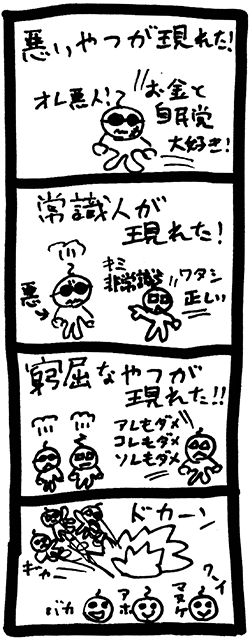 悪いやつが現れた!
オレ悪人!
お金と
自民党
大好き!
常識人が
現れた!
悪→
キミ
非常識よ
ワタシ
正しい
窮屈なやつが
現れた!!
アレもダメ
コレもダメ
ソレもダメ
ドカーン
ギャー
バカ
アホ
マヌケ
ワーイ